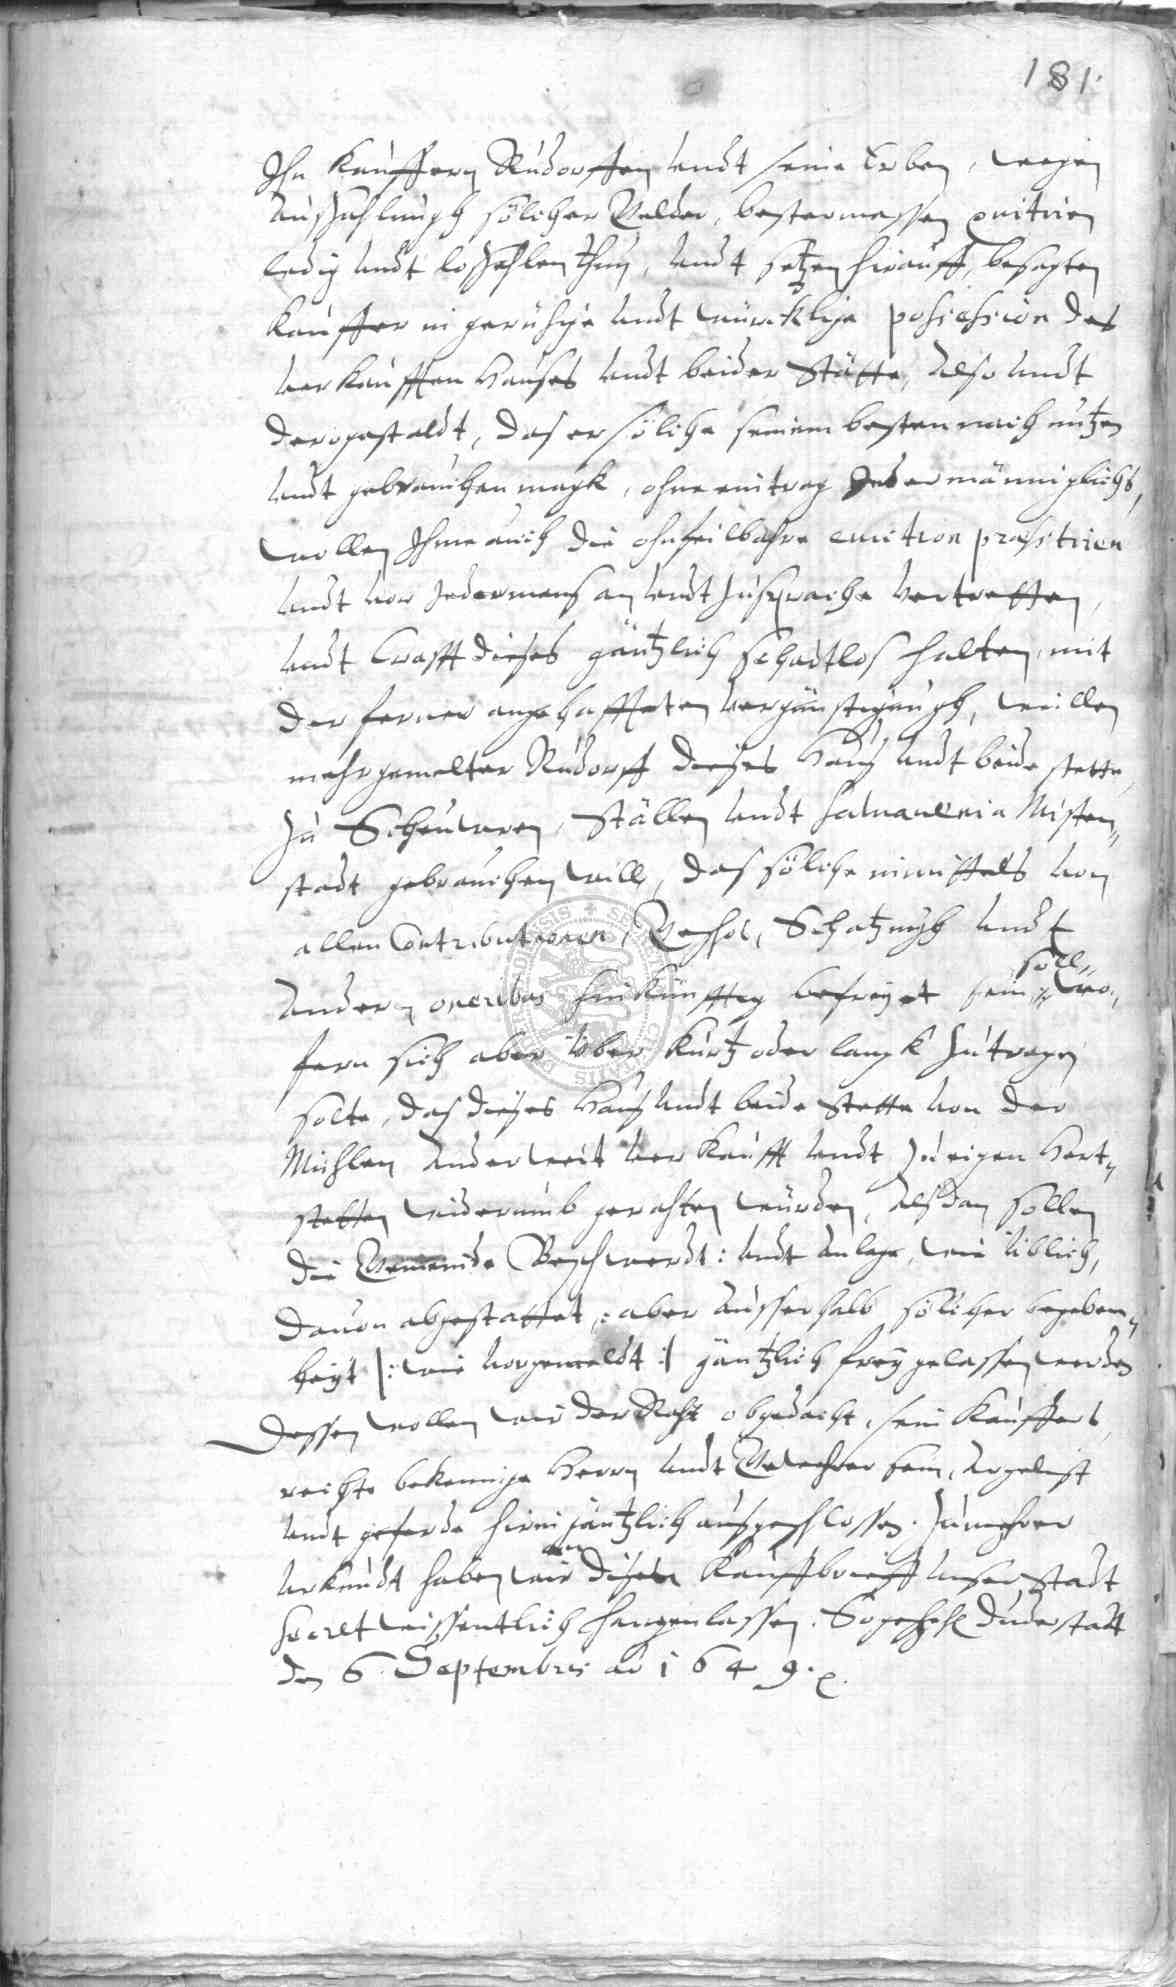 181.
Ihn Kauffern Rudorffen undt seine Erben, wegen
Auszahlungh sölicher Gelder, bestermassen quitiren
ledig undt loszehlen thun, undt setzen hirauff, besagten
Kauffer in geruhige undt würcklige possession des
verkaufften Hauses undt beider Stätte, Also undt
dergestaldt, das er söliche seinem besten nach nutzen
undt gebrauchen magk, ohne eintrag Jedermänniglichs,
wollen Ihme auch die ohnfeilbahre eviction præstiren
undt vor Jedermans an undt Zusprache vertretten,
undt Crafft dieses gäntzlich schadtlos halten, mit
der ferner angehaffteten vergünstigungh, weillen
mehrgemelter Rudorff dieses Haus undt beide stette,
zu Scheuwren, Ställen undt salva venia Misten„
stadt gebrauchen will, das söliche immittels von
allen Contributionen, Geschos, Schatzungh undt
Andern oneribus hinkünfftig befreyet sein„
söll„
Wo„
fern sich aber über kurtz oder langk zutragen
solte, das dieses Haus undt beide Stette von der
Mühlen Anderweit verkaufft undt zu eigen Hert„
stetten widerumb gerahten würden, alsdan sollen
die Gemeinde Beschwerdt: undt Anlage, wie üblich,
davon abgestattet, aber ausserhalb sölicher begeben„
heyt |: wie vorgemeldt :| gäntzlich frey gelassen werden
Dessen wollen wir der Raht obgedacht, sein Kauffers,
rechte bekennige Herrn undt Gewehrer sein, Argelist
undt geferde hirin gäntzlich ausgeschlossen. Zu mehrer
Urkundt haben wir diesen Kauffbrieff unser Stadt
Secret wissentlich hangen lassen. So geschehen Duderstadt
den 6. Septembris ao 1649.